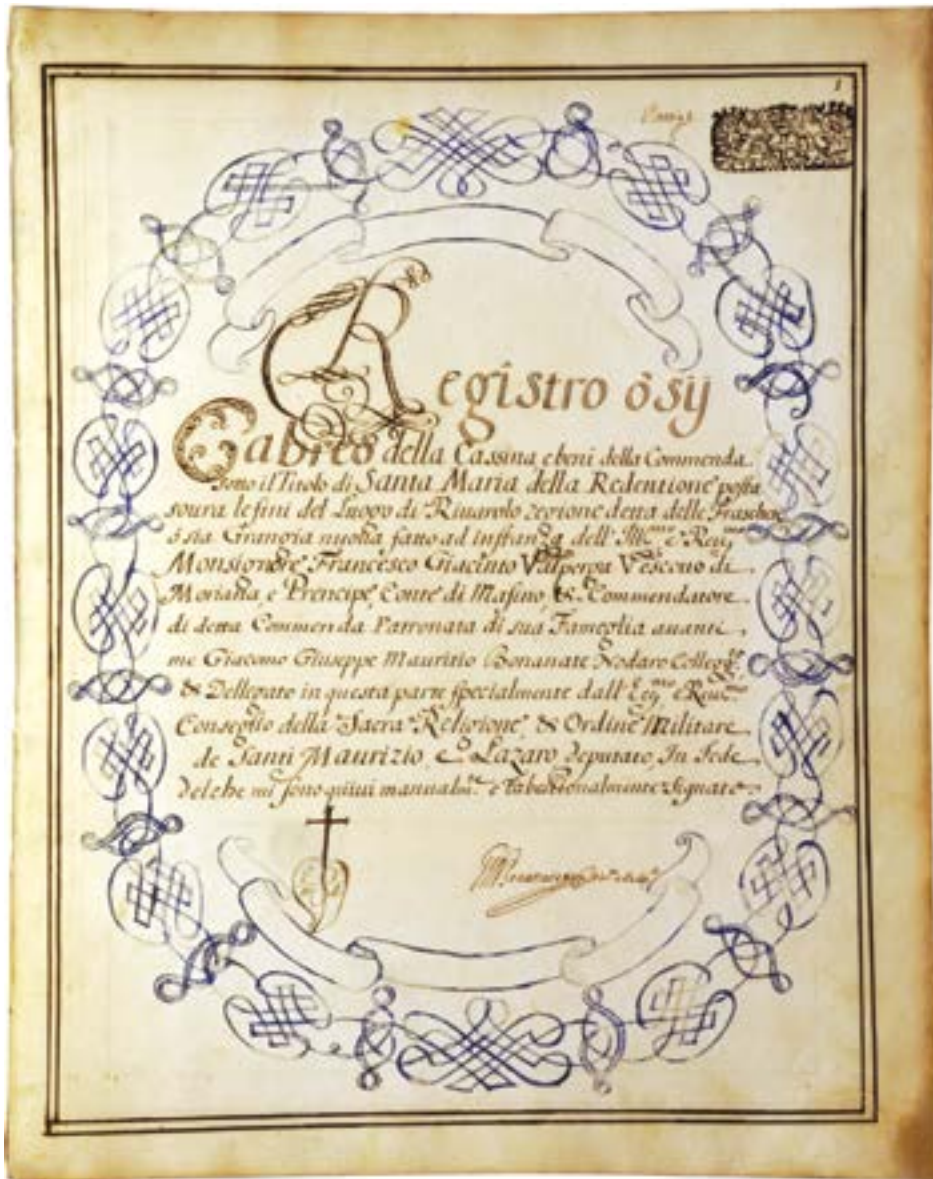 1
Registro ò sij
Cabreo della Cassina e beni della Commenda
sotto il Titolo di Santa Maria della Redentione posta
soura le fini del Luogo di Riuarolo regione detta delle Frasche
ò sia Grangia nuoua fatto ad instanza dell' Ill.mo e Reu.mo
Monsignore Francesco Giacinto Valperga Vescouo di
Moriana, e Prencipe, Conte di Masino, & Commendatore
di detta Commenda Patronata di sua Fameglia auanti
me Giacomo Giuseppe Mauritio Bonanate Nodaro Colleg.to
& Dellegato in questa parte specialmente dall' Ecc.mo e Reu.mo
Conseglio della Sacra Religione, & Ordine Militare
de Santi Maurizio, e Lazaro deputato, In Fede
del che mi sono quiui manualm.te e tabellionalmente signato